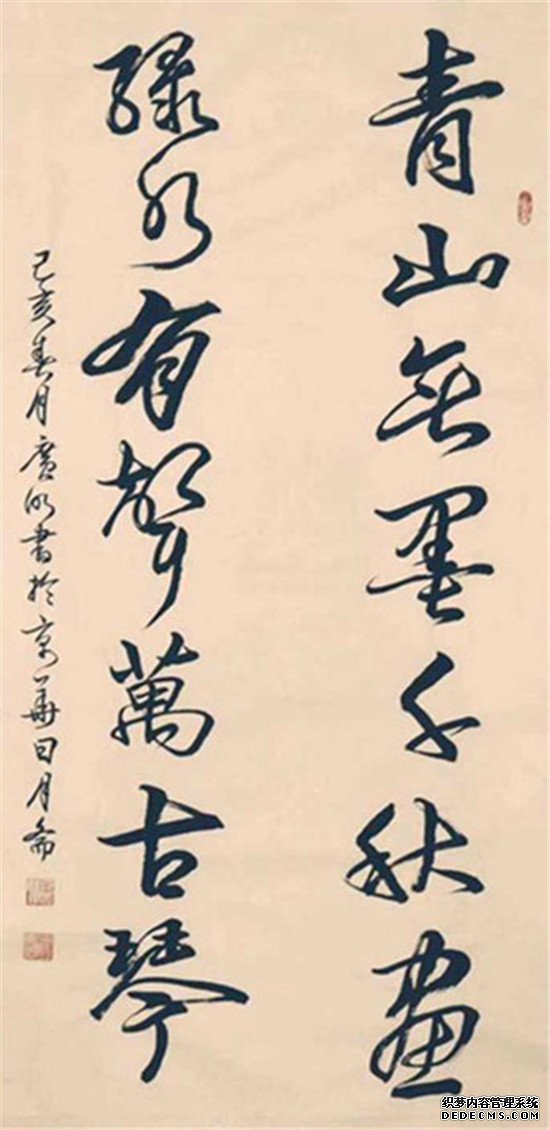 青山無墨千秋畫
綠水有聲萬古琴
己亥春月廣明書於京華日月齋
织梦内容管理系统
DEDECMS.COM